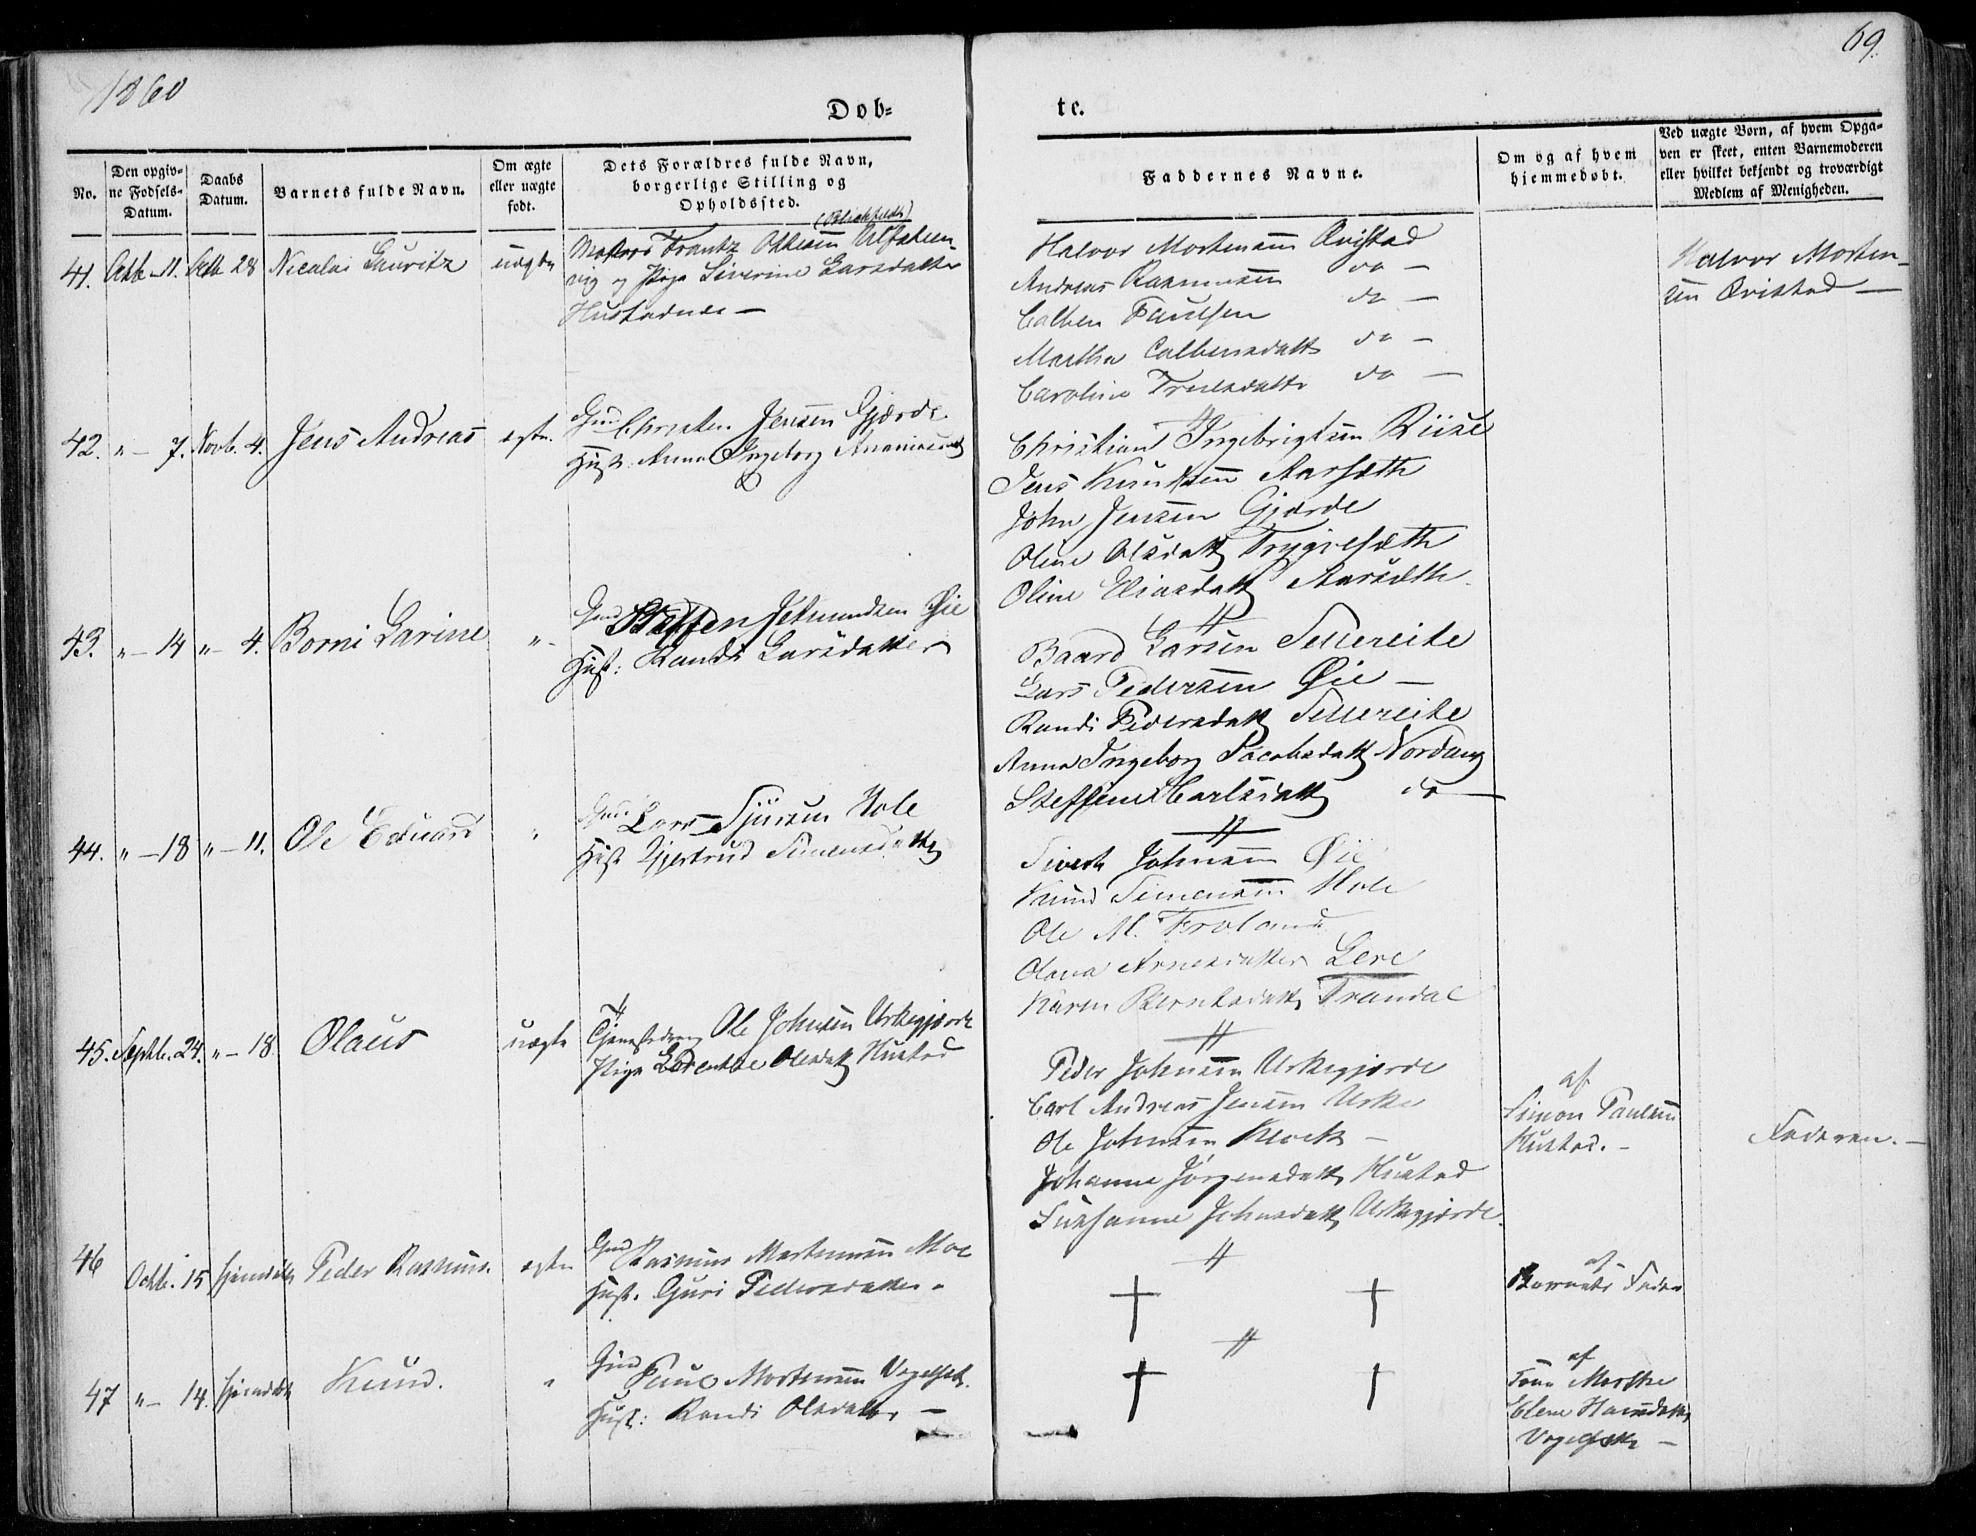 1860
69.
Døb=
te.
No.
Den opgiv-
ne Fødsels-
Datum.
Daabs
Datum.
Barnets fulde Navn.
Om ægte
eller uægte
født.
Dets Forældres fulde Navn,
borgerlige Stilling og
Opholdssted.
Faddernes Navne.
Om og af hvem
hjemmedøbt.
Ved uægte Børn, af hvem Opga-
ven er skeet, enten Barnemoderen
eller hvilket bekjendt og troværdigt
Medlem af Menigheden.
41. Octb. 11. Octb 28 Nicolai Lauritz uægte
Matros Frantz
vig og Pige Severine Larsdatter
Hustadnes —
Halvor Mortensen Qvistad
Andreas Rasmussen do —
Colben Paulsen do —
Martha Colbensdatt do —
Caroline Truelsdatt do —
Halvor Morten-
sen Qvistad —
42. " — 7. Novb. 4. Jens Andreas ægte.
Gmd Christen Jensen Gjerde.
Hust. Anna Ingeborg
Christian Ingebrigtsen Riise
Jens Knudsen Aarsæth
John Jensen Gjerde
Oline Olsdatt Trygvesæth
Oline Eliasdatt Aarsæth.
43. " — 14 " — 4. Borni Larine " -
Gmd Steffen Jetmundsen Øie
Hust: Randi Larsdatter
Baard Larsen Sellereite
Lars Pedersen Øie —
Randi Pedersdatt Sellereite
Anna Ingeborg Jacobsdatt Nordang
Steffine Carlsdatt do —
44. " — 18 " — 11. Ole Eduard "
Gmd Lars Sjursen Hole
Hust Gjertrud Simensdatt
Sivert Johnsen Øie
Knud Simensen Hole
Ole M. Froland
Olava Arnesdatter Lere
Karen Berntsdatt Trandal
45. Septb. 24. " — 18 Olaus uægte
Tjenestedreng Ole Johnsen Urkegjerde
Pige Lorentse Olsdatt Hustad
Peder Johnsen Urkegjerde
Carl Andreas Jensen Urke
Ole Johnsen Klock —
Johanne Jørgensdatt Hustad
Susanne Johnsdatt Urkegjerde.
af
Simon Paulsen
Hustad. -
Faderen. —
46 Octb. 15 hjemdøbt Peder Rasmus. ægte
Gmd Rasmus Mortensen Moe
Hust. Guri Pedersdatter -
af
Barnets Fader
47 " — 14. hjemdøbt Knud. "
Gmd Paul Mortensen Vogelset.
Hust: Randi Olsdatter —
af
Marthe
Elene Hansdatt
Vogelset —